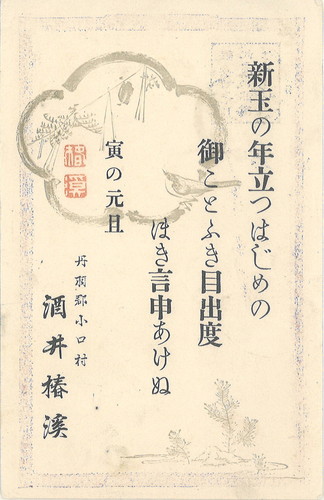 新玉の年立つはじめの
御ことふき目出度
ほき言申あけぬ
寅の元旦
丹羽郡小口村
酒井椿溪
椿溪